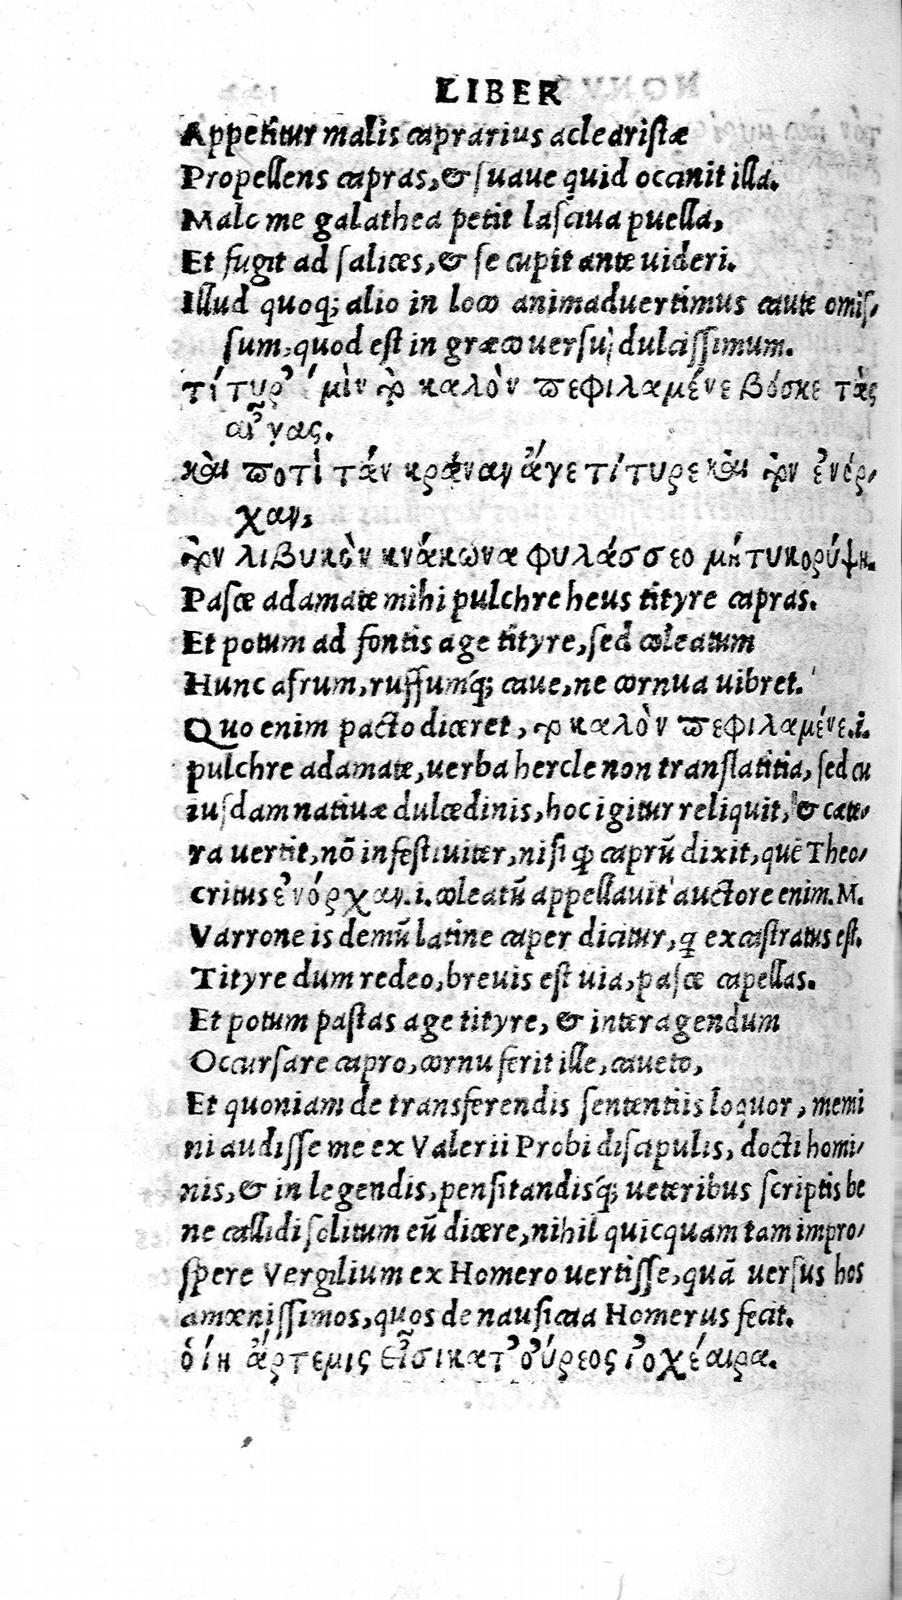 LIBER
Appetitur malis caprarius a clearistæ
Propellens capras, & suaue quid occinit illa.
Malo me galathea petit lasciua puella,
Et fugit ad salices, & se cupit ante uideri.
Illud quoq; alio in loco animaduertimus caute omis,
sum, quod est in græco uersu, dulcissimum.
τίτυρ' ἐμὶν τὸ καλὸν πεφιλαμένε βόσκε τὰς
αἶγας.
καὶ ποτὶ τάν κράναν ἄγε τίτυρε καὶ τὸν ἐνόρ,
χαν,
τὸν λιβυκὸν κνάκωνα φυλάσσεο μή τυ κορύψη.
Pasce adamate mihi pulchre heus tityre capras.
Et potum ad fontis age tityre, sed coleatum
Hunc afrum, russumq́; caue, ne cornua uibret.
Quo enim pacto diceret, τὸ καλὸν πεφιλαμένε.i.
pulchre adamate, uerba hercle non translatitia, sed cu
iusdam natiuæ dulcedinis, hoc igitur reliquit, & cæte,
ra uertit, nō infestiuiter, nisi ꝙ caprū dixit, quē Theo,
critus ἐνόρχαν.i. coleatū appellauit auctore enim. M.
Varrone is demū latine caper dicitur, q excastratus est.
Tityre dum redeo, breuis est uia, pasce capellas.
Et potum pastas age tityre, & inter agendum
Occursare capro, cornu ferit ille, caueto,
Et quoniam de transferendis sententiis loquor, memi
ni audisse me ex Valerii Probi discipulis, docti homi,
nis, & in legendis, pensitandisq́; ueteribus scriptis be
ne callidi solitum eū dicere, nihil quicquam tam impro,
spere Vergilium ex Homero uertisse, quā uersus hos
amœnissimos, quos de nausicaa Homerus fecit.
ὁίη ἄρτεμις εἶσι κατ' οὔρεος ἰοχέαιρα.